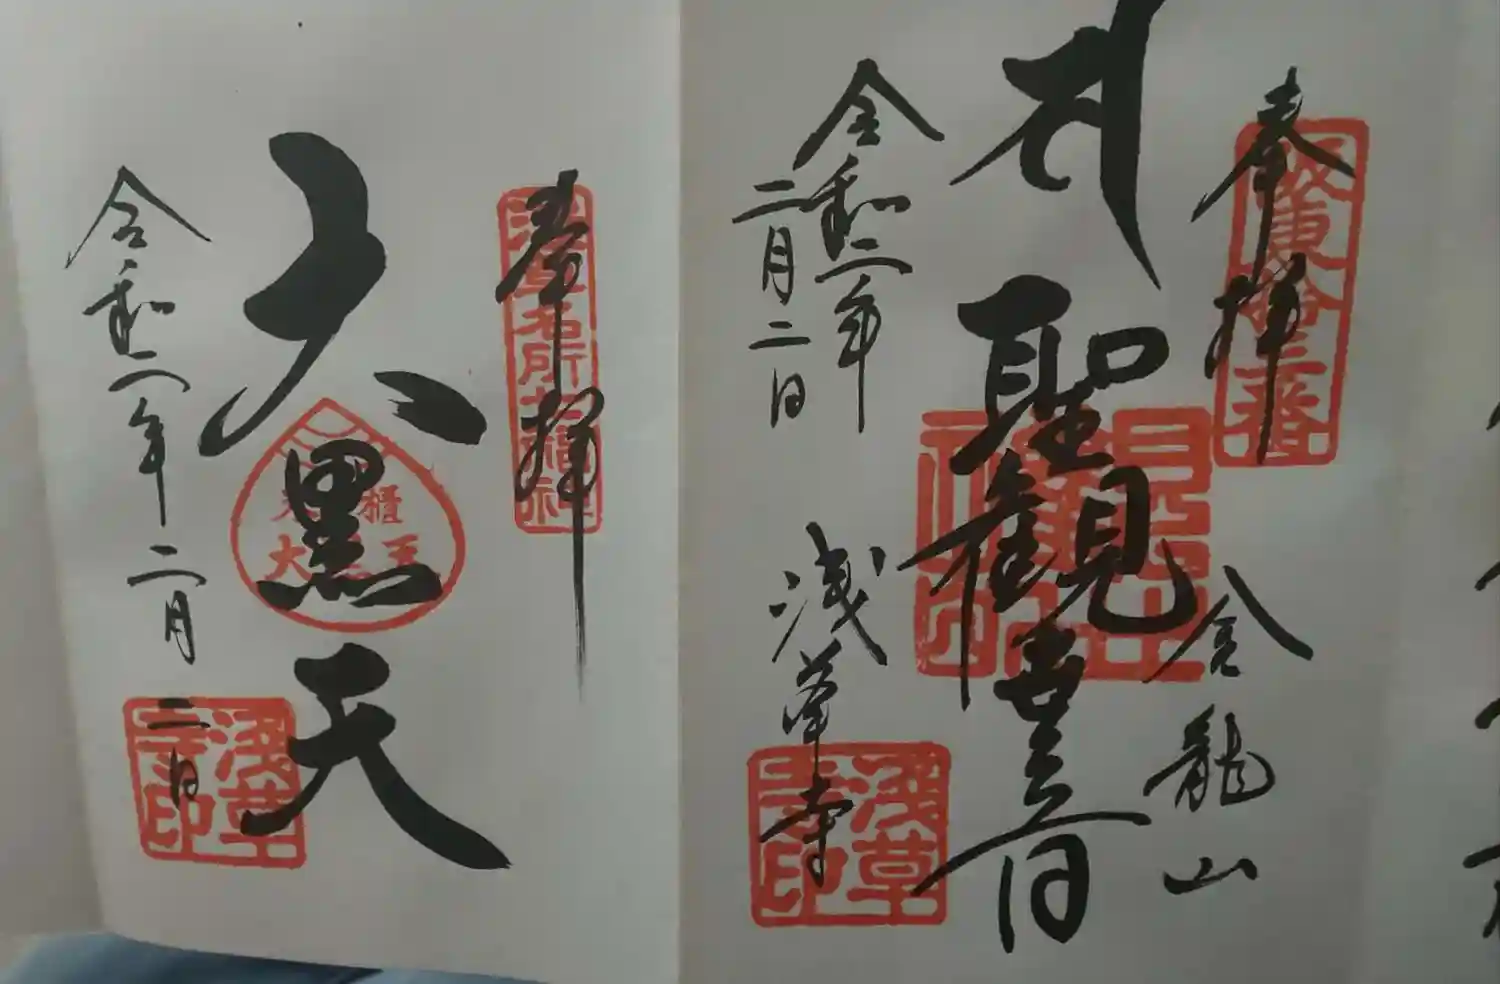 奉拝
坂東拾三番
金龍山
聖観世音
令和二年
二月二日
浅草寺
浅草寺印
奉拝
浅草名所七福神
大黒天
令和二年二月二日
浅草寺印